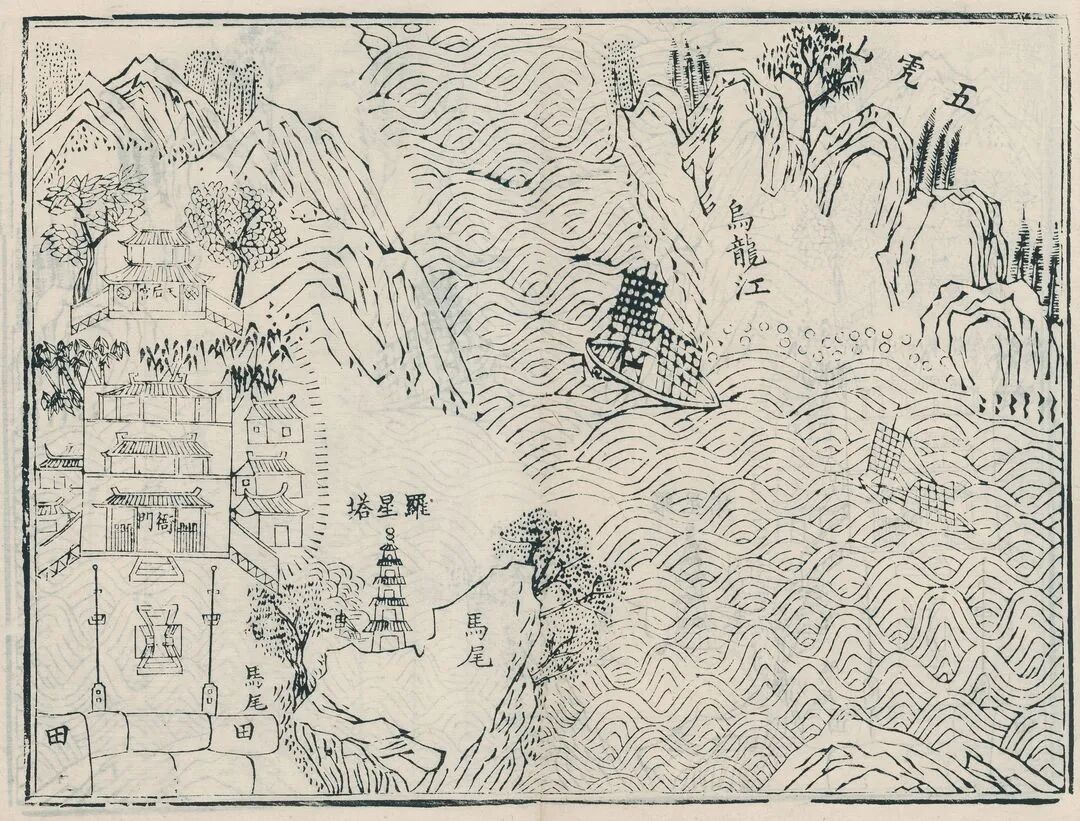 五虎山
一
烏龍江
天后宮
衙門
羅星塔
馬尾
馬尾
田
田